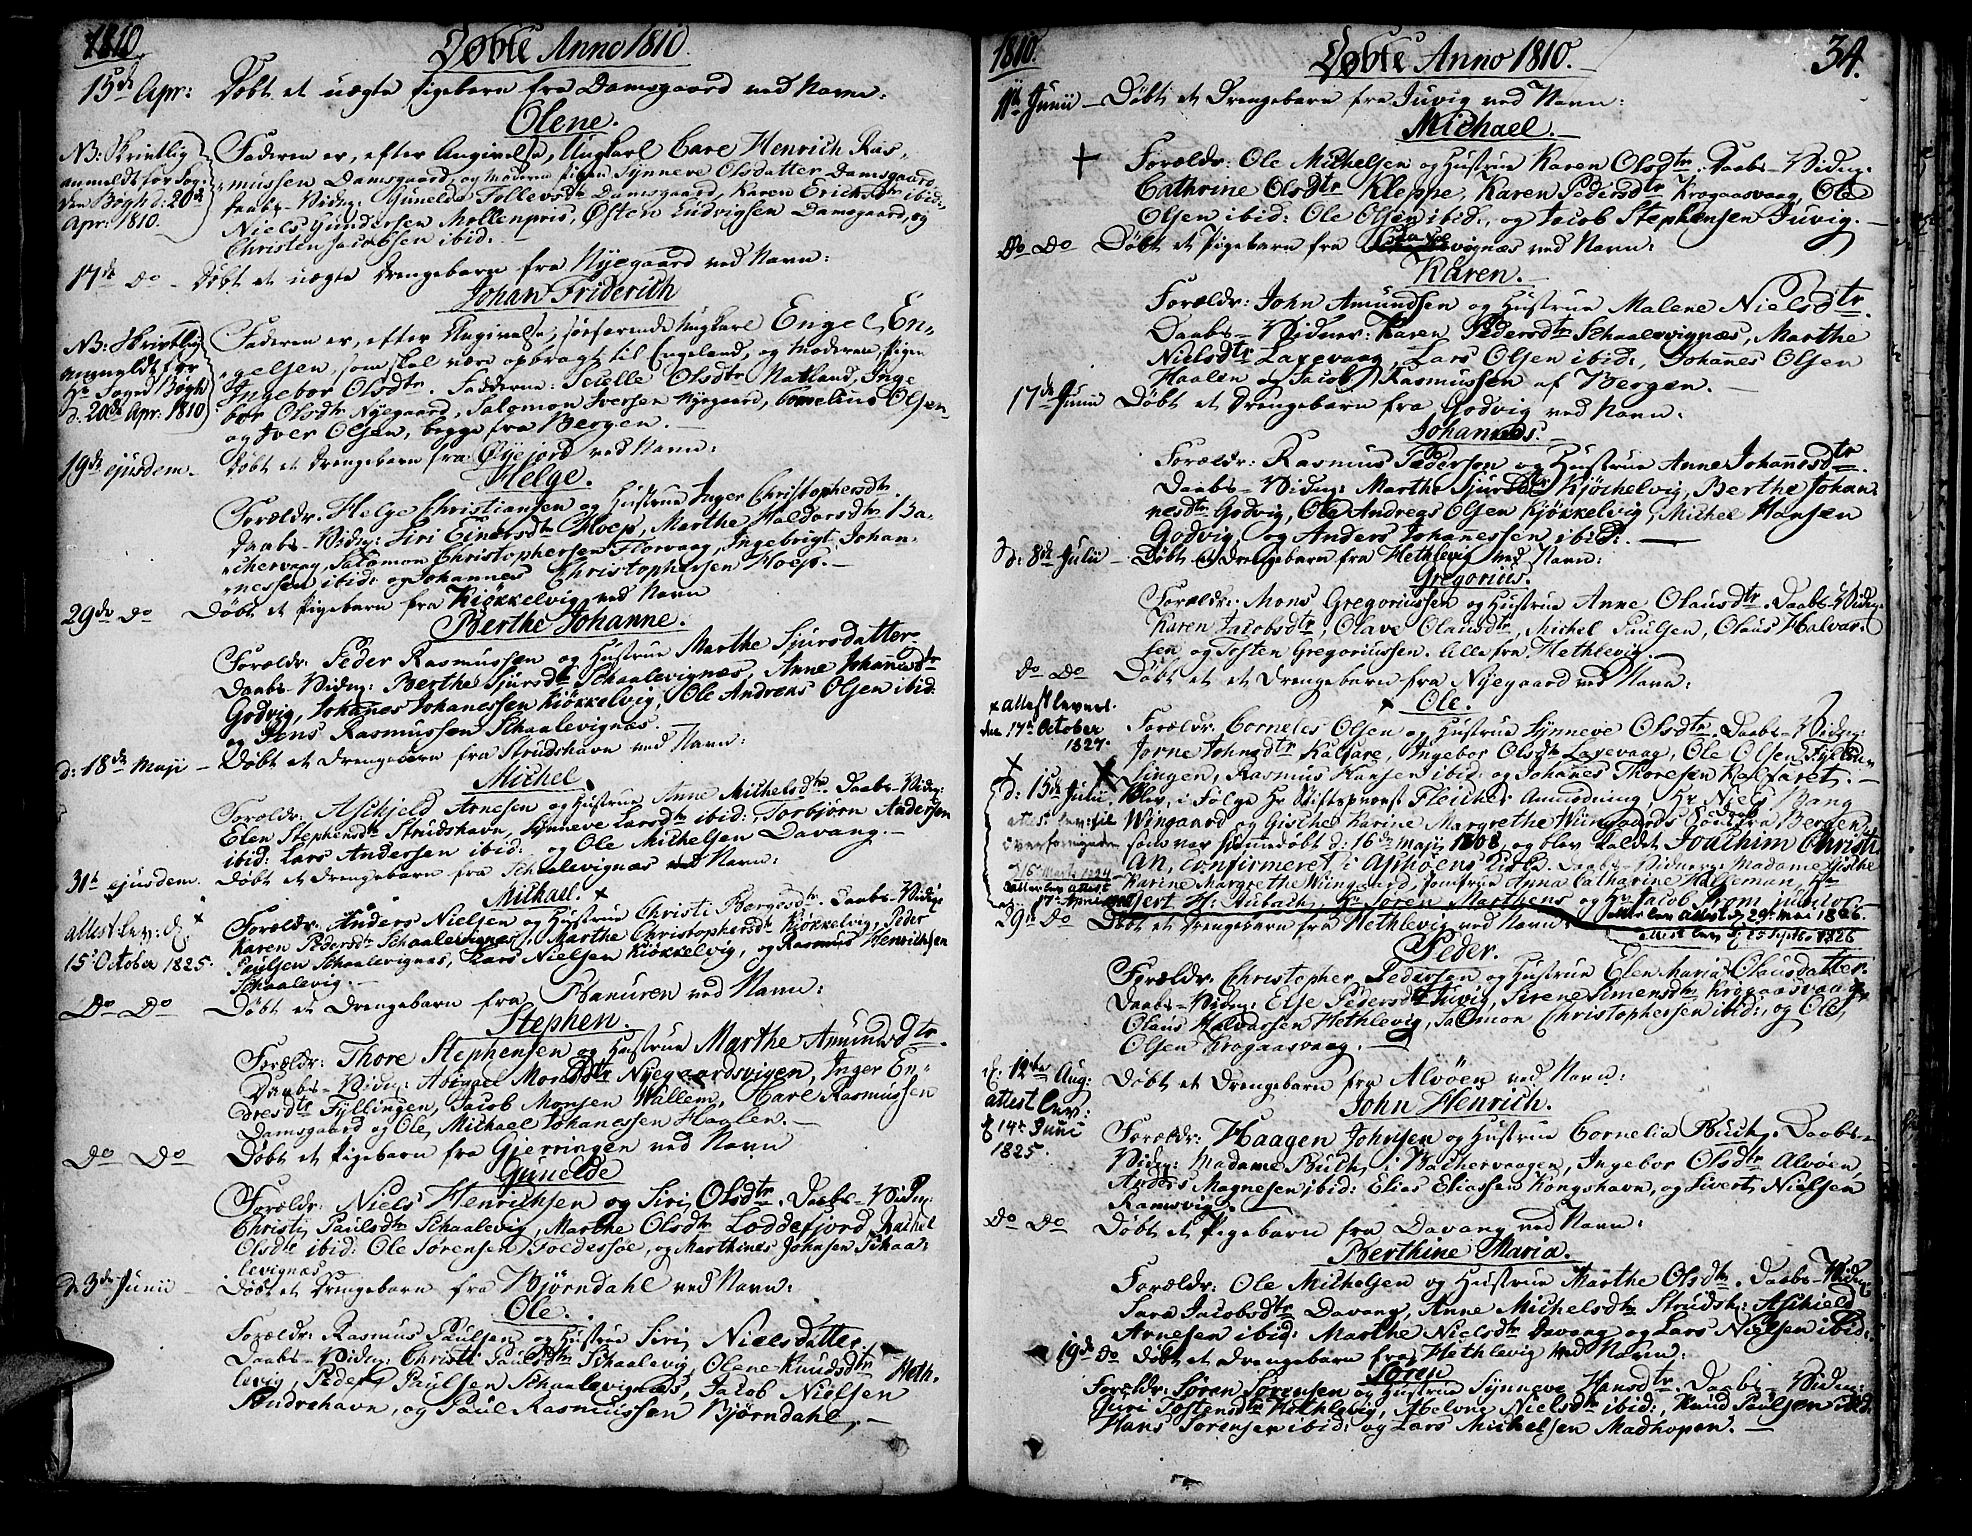 1810.
Døbte Anno 1810.
15de Apr: Døbt et uægte Pigebarn fra Damsgaard ved Navn:
Olene.
NB: Skrivtlig
anmeldt for Fog-
den Bøgh d. 20de
Apr: 1810.
Faderen er, efter Angivelse, Ungkarl Carl Henrich Ras-
mussen Damsgaard, og Moderen Pigen Synneve Olsdatter Damsgaard.
Daabs-Vidn: Gunelda Tollevsdtr Damsgaard, Karen Erichsdtr ibid:
Niels Gundersen Møllenpris, Østen Ludvigsen Damsgaard, og
Christen Jacobsen ibid. —
17de do - Døbt et uægte Drengebarn fra Nyegaard ved Navn:
Johan Friderich
NB: Skrivtlig
anmeldt for
Hr Foged Bøgh
d. 20de Apr: 1810
Faderen er, efter Angivelse, søefarende Ungkarl Engel En-
gelsen, som skal være opbragt til Engeland, og Moderen, Pigen
Ingebor Olsdtr. Fadderne: Sicelle Olsdtr Natland, Inge
bor Olsdtr Nyegaard, Salomon Iversen Nyegaard, Cornelius Olsen
og Iver Olsen, begge fra Bergen. —
19de ejusdem - Døbt et Drengebarn fra Øyejord ved Navn:
Helge.
Forældr: Helge Christiansen og Hustrue Inger Christophersdtr
Daabs-Vidn: Siri Einersdtr Hoep, Marthe Haldorsdtr Ba-
chervaag, Salomon Christophersen Florvaag, Ingebrigt Johan-
nessen ibid: og Johannes Christophersen Hoep. —
29de do Døbt et Pigebarn fra Kiøkkelvig ved Navn
Berthe Johanne.
Forældr: Peder Rasmussen og Hustrue Marthe Sjursdatter.
Daabs-Vidn: Berthe Sjursdtr Schaalevignæs, Anne Johannesdtr
Godvig, Johanes Johanessen Kiøkkelvig, Ole Andreas Olsen ibid:
og Jens Rasmussen Schaalevignæs.
d: 18de Maji - Døbt et Drengebarn fra Strudshavn ved Navn:
Michel
Forældr: Aschield Arnesen og Hustrue Anne Michelsdtr. Daabs-Vidn:
Elen Stephensdtr Strudshavn, Synneve Larsdtr ibid: Torbjørn Andersen
ibid: Lars Andersen ibid: og Ole Michelsen Davang. —
31te ejusdem. Døbt et Drengebarn fra Schaalevignæs ved Navn:
Michael. x
attest lev: d: x
15de October 1825.
Forældr: Anders Nielsen og Hustrue Christi Børgesdtr. Daabs-Vidn:
Karen Pedersdtr Schaalevignæs, Marthe Christophersdtr Kiøkkelvig, Peder
Paulsen Schaalevignæs, Lars Nielsen Kiøkkelvig, og Rasmus Henrichsen
Schaalevig. —
Do Do Døbt et Drengebarn fra Hanuren ved Navn:
Stephen.
Forældr: Thore Stephensen og Hustrue Marthe Amundsdtr.
Daabs-Vidn: Abigael Monsdtr Nyegaardsvigen, Inger En-
dresdtr Fyllingen, Jacob Monsen Hallem, Carl Rasmussen
Damsgaard og Ole Michael Johanessen Haalen. —
Do Do Døbt et Pigebarn fra Gierringen ved Navn
Gunelde
Forældr: Niels Henrichsen og Siri Olsdtr. Daabs-Vidn:
Christi Paulsdtr Schaalevig, Marthe Olsdtr Loddefjord, Rachel
Olsdtr ibid: Ole Sørensen Foldessøe, og Marthines Johnsen Schaa-
levignæs. —
d: 3de Junii - Døbt et Drengebarn fra Bjørndahl ved Navn:
Ole.
Forældr: Rasmus Paulsen og Hustrue Siri Nielsdatter
Daabs-Vidn: Christi Paulsdtr Schaalevig, Olene Knudsdtr Heth-
levig, Peder Paulsen Schaalevignæs, Jacob Nielsen
Sondrehavn, og Paul Rasmussen Bjørndahl. —
1810.
Døbte Anno 1810.
34.
11te Junii - Døbt et Drengebarn fra Juvig ved Navn:
Michael. —
+ Forældr: Ole Michelsen og Hustrue Karen Olsdtr. Daabs-Vidn:
Cathrine Olsdtr Kleppe, Karen Pedersdtr Krogaasvaag, Ole
Olsen ibid: Ole Olsen ibid:, og Jacob Stephensen Juvig. —
Do Do Døbt et Pigebarn fra Schaalevignæs ved Navn:
Karen.
Forældr: John Amundsen og Hustrue Malene Nielsdtr.
Daabs-Vidner: Karen Pedersdtr Schaalevignæs, Marthe
Nielsdtr Laxevaag, Lars Olsen ibid:, Johannes Olsen
Haalen og Jacob Rasmussen af Bergen. —
17de Junii Døbt et Drengebarn fra Godvig ved Navn:
Johannes.
Forældr: Rasmus Pedersen og Hustrue Anne Johannesdtr.
Daabs-Vidn: Marthe Sjursdtr Kjøchelvig, Berthe Johan-
nesdtr Godvig, Ole Andreas Olsen Kjøkkelvig, Michel Hansen
Godvig, og Anders Johanessen ibid: —
d: 8de Julii - Døbt et Drengebarn fra Hethlevig ved Navn:
Gregorius.
Forældr: Mons Gregoriussen og Hustrue Anne Olausdtr. Daabs-Vidn:
Karen Jacobsdtr, Olave Olausdtr, Michel Paulsen, Olaus Halvor-
sen og Tosten Gregoriussen. Alle fra Hethlevig. —
Do Do Døbt et Drengebarn fra Nyegaard ved Navn:
x Ole.
x attest leveret
den 17de October
1827.
Forældr: Cornelis Olsen og Hustrue Synneve Olsdtr. Daabs-Vidn:
Jorne Johnsdtr Kalfare, Ingebor Olsdtr Laxevaag, Ole Olsen Fyl-
lingen, Rasmus Hansen ibid: og Johanes Thoresen Kalfaret. —
d: 15de Julii. Blev, i Følge Hr Stiftsprovst Fleischers Anmodning, Hr Niels Bang
attest lev: til
Overformynderen
d 16 Marts 1824
Wiingaard og Gische Karine Margrethe Wiingaards Søn fra Bergen,
som var hiemmedøbt d: 16de Maji 1808, og blev kaldet Joachim Christi-
an, confirmeret i Aschøens Kirke. Daabs-Vidner: Madame Gische
Karine Margrethe Wiingaard, Jomfrue Anna Catharine Halseman, Hr
H: Aubach, Hr Søren Marthens og Hr Jacob From junior.
atter lev attest d 29 Mai 1826.
attest lev d: 25 Septbr 1826
29de Do Døbt et Drengebarn fra Hethlevig ved Navn:
Peder.
Forældr: Christopher Pedersen og Hustrue Elen Maria Olausdatter.
Daabs-Vidn: Else Pedersdtr Juvig, Sirene Simensdtr Krogaasvaag,
Olaus Halvorsen Hethlevig, Salomon Christophersen ibid:, og Ole
Olsen Krogaasvaag. —
d: 12te Aug: Døbt et Drengebarn fra Alvøen ved Navn:
John Henrich.
attest lev:
d 14de Juni
1825.
Forældr: Haagen Johnsen og Hustrue Cornelia Buch. Daabs-
Vidn: Madame Buch i Bachervaagen, Ingebor Olsdtr Alvøen,
Anders Magnesen ibid: Elias Eliassen Kongshavn, og Sivert Nielsen
Ramsvig. —
Do Do Døbt et Pigebarn fra Davang ved Navn:
Berthine Maria.
Forældr: Ole Michelsen og Hustrue Marthe Olsdtr. Daabs-Vidn:
Sara Jacobsdtr Davang, Anne Michelsdtr Strudsh: Aschield
Arnesen ibid: Marthe Nielsdtr Davang og Lars Nielsen ibid:
19de do Døbt et Drengebarn fra Hethlevig ved Navn:
Søren
Forældr: Søren Sørensen og Hustrue Synneve Hansdtr. Daabs-Vidn:
Guri Tostensdtr Hethlevig, Abelone Nielsdtr ibid:, Knud Paulsen ibid:
Hans Sørensen ibid: og Lars Michelsen Madhopen. —